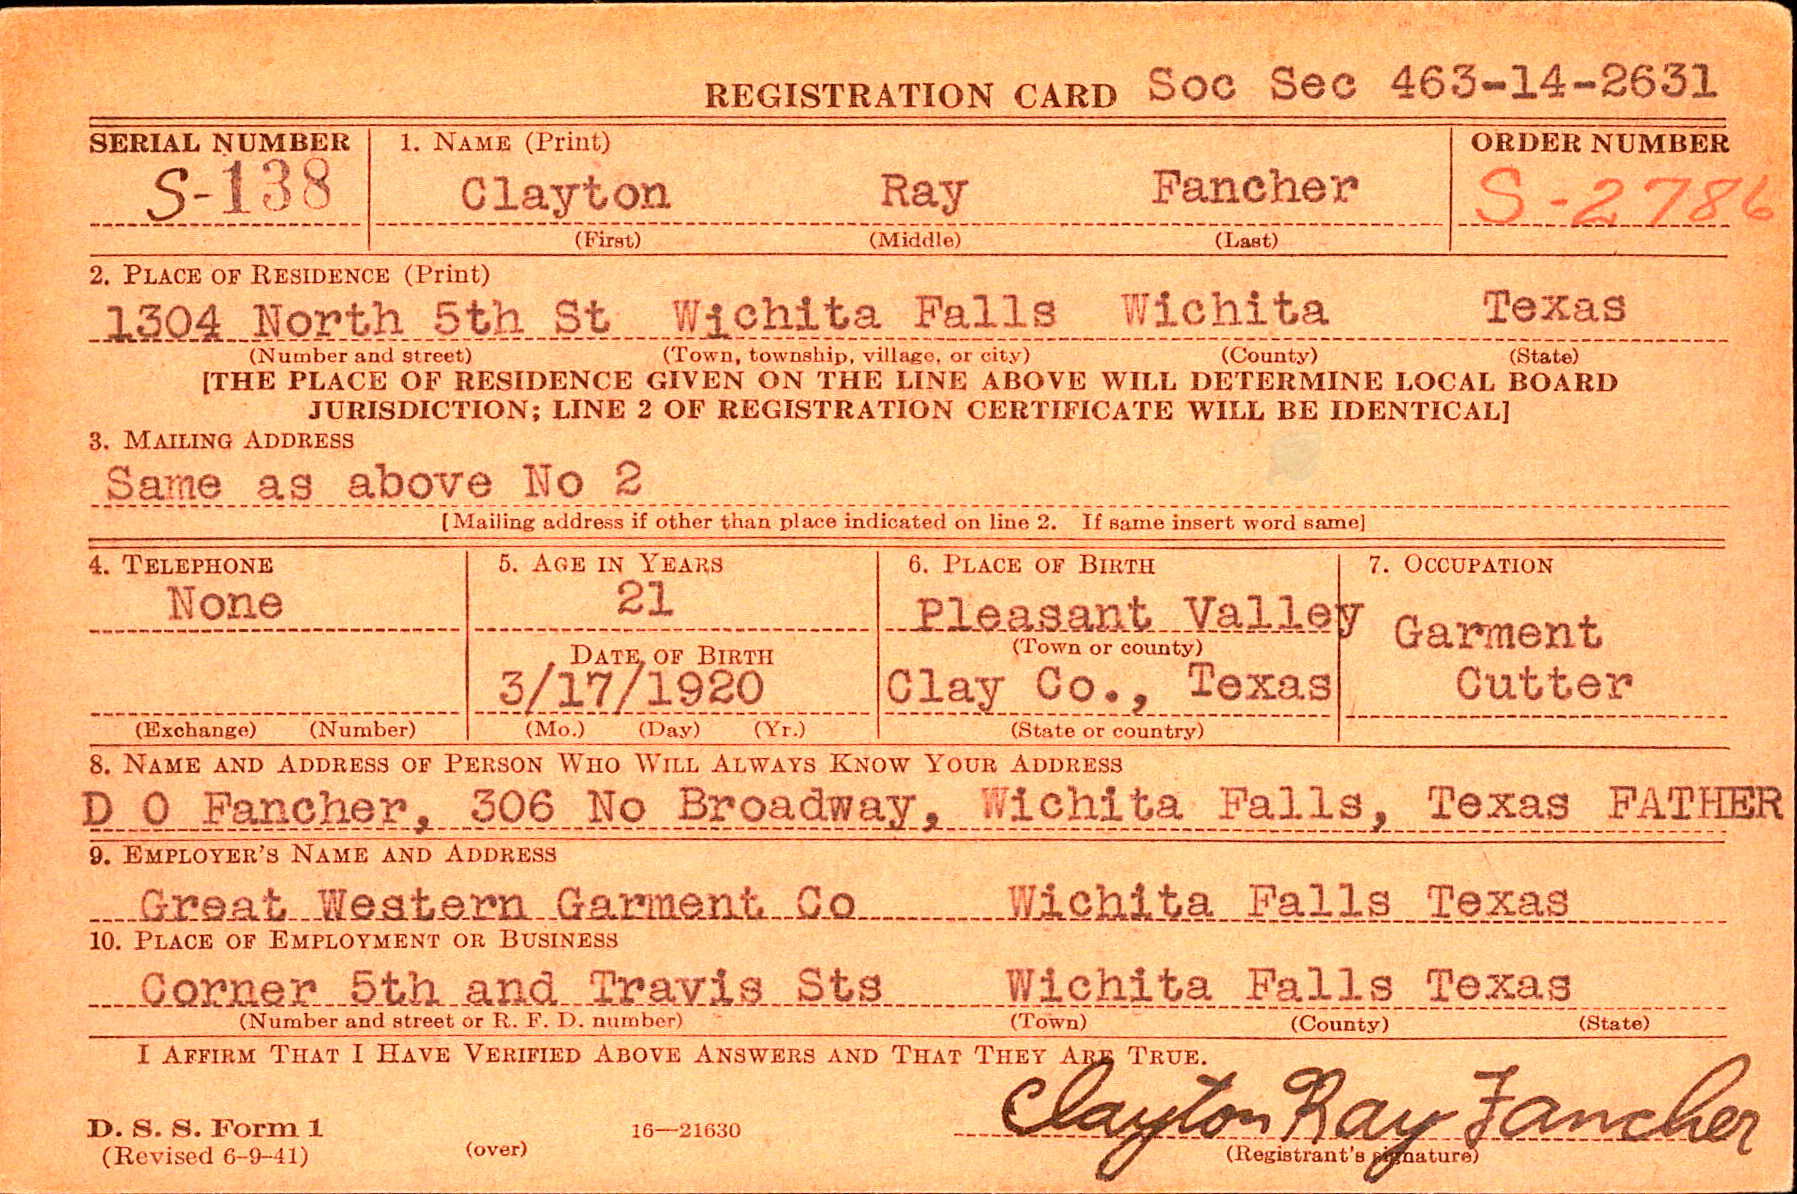 REGISTRATION CARD Soc Sec 463-14-2631
SERIAL NUMBER 1. NAME (Print) ORDER NUMBER
S-138 Clayton Ray Fancher S-2786
(First) (Middle) (Last)
2. PLACE OF RESIDENCE (Print)
1304 North 5th St Wichita Falls Wichita Texas
(Number and street) (Town, township, village, or city) (County) (State)
[THE PLACE OF RESIDENCE GIVEN ON THE LINE ABOVE WILL DETERMINE LOCAL BOARD
JURISDICTION; LINE 2 OF REGISTRATION CERTIFICATE WILL BE IDENTICAL]
3. MAILING ADDRESS
Same as above No 2
[Mailing address if other than place indicated on line 2. If same insert word same]
4. TELEPHONE 5. AGE IN YEARS 6. PLACE OF BIRTH 7. OCCUPATION
None 21 Pleasant Valley Garment
DATE OF BIRTH (Town or county)
3/17/1920 Clay Co., Texas Cutter
(Exchange) (Number) (Mo.) (Day) (Yr.) (State or country)
8. NAME AND ADDRESS OF PERSON WHO WILL ALWAYS KNOW YOUR ADDRESS
D O Fancher, 306 No Broadway, Wichita Falls, Texas FATHER
9. EMPLOYER'S NAME AND ADDRESS
Great Western Garment Co Wichita Falls Texas
10. PLACE OF EMPLOYMENT OR BUSINESS
Corner 5th and Travis Sts Wichita Falls Texas
(Number and street or R. F. D. number) (Town) (County) (State)
I AFFIRM THAT I HAVE VERIFIED ABOVE ANSWERS AND THAT THEY ARE TRUE.
Clayton Ray Fancher
D. S. S. Form 1 16—21630
(Revised 6-9-41) (over) (Registrant's signature)